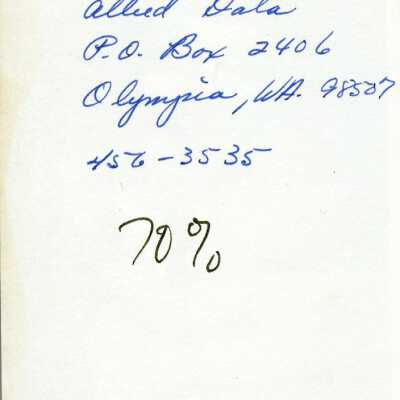 Allied Data
P.O. Box 2406
Olympia, WA. 98507
456-3535
70%